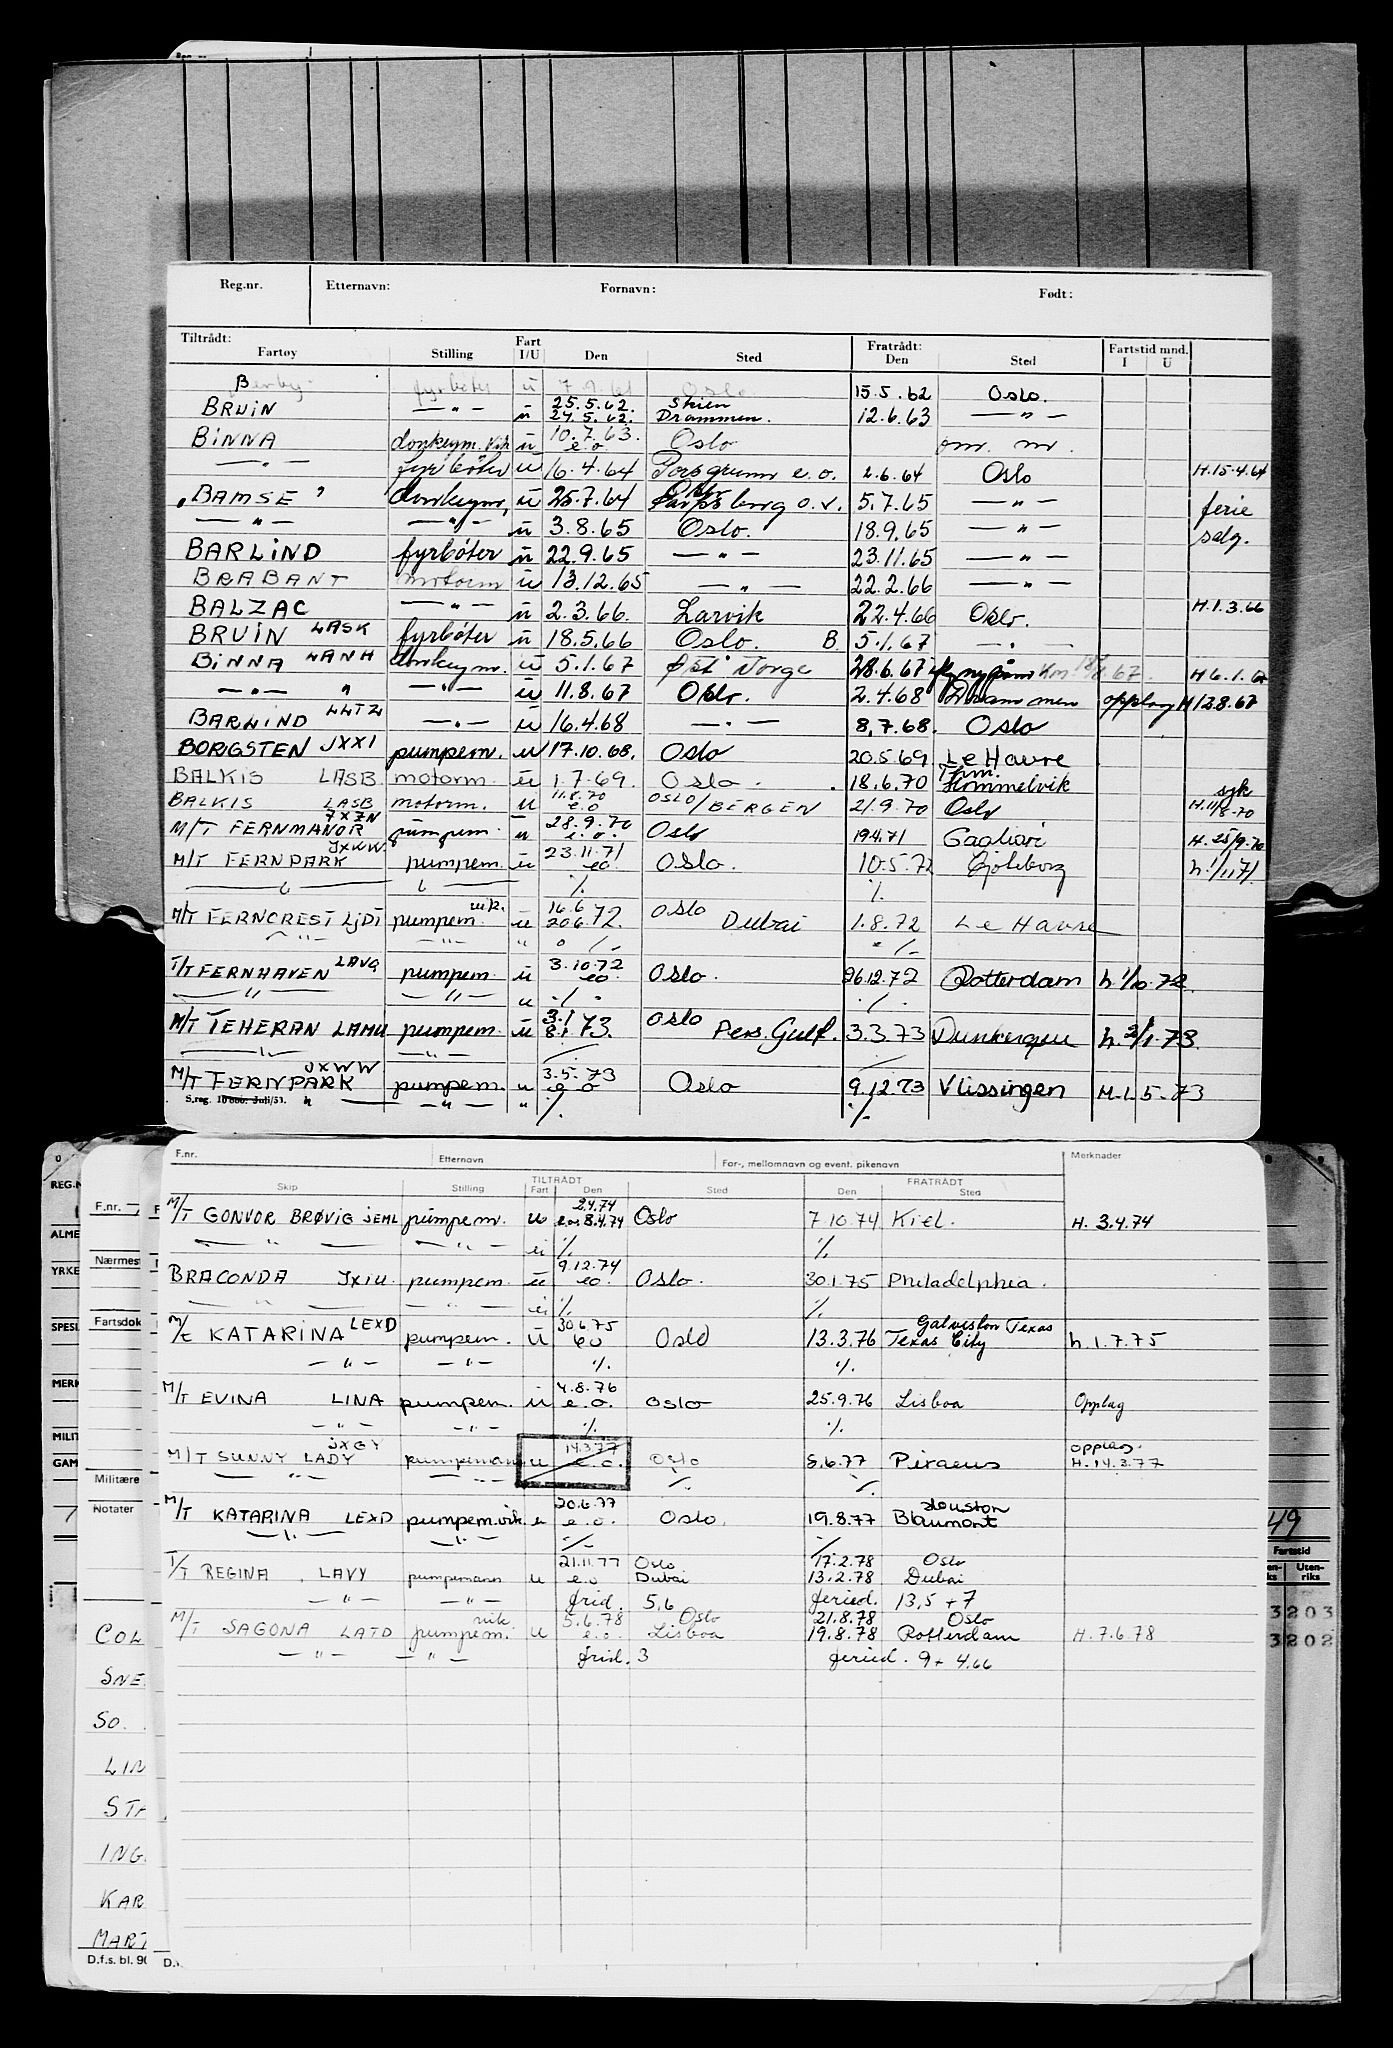 Reg.nr. Etternavn: Fornavn: Født:
Tiltrådt: Fart Fratrådt: Fartstid mnd.
Fartøy Stilling I/U Den Sted Den Sted I U
fyrbøter u 7.9.61 Oslo 15.5.62 Oslo.
BRUIN —"— u 25.5.62. 27.5.62. Skien Drammen. 12.6.63 —"—
BINNA donkeym. vik u 10.7.63. e.o. Oslo om. m.
—"— fyrbøter u 16.4.64 Porsgrunn e.o. 2.6.64 Oslo H.15.4.64
"BAMSE" donkeym, u 25.7.64 Oslo Sarpsborg o.v. 5.7.65 —"— ferie
—"— —"— u 3.8.65 Oslo. 18.9.65 —"— salg.
BARLIND fyrbøter u 22.9.65 —"— 23.11.65 —"—
BRABANT motorm u 13.12.65 —"— 22.2.66 —"—
BALZAC —"— u 2.3.66. Larvik 22.4.66 Oslo. H.1.3.66
BRUIN LASK fyrbøter u 18.5.66 Oslo. B. 5.1.67 —"—
BINNA LANH donkeym. u 5.1.67 Øst Norge 28.6.67 H 6.1.67
—"— " —"— u 11.8.67 Oslo. 2.4.68 Drammen opplag H 12.8.67
BARLIND LLTZ —"— u 16.4.68 —"— 8.7.68. Oslo
BORGSTEN JXXI pumpem. u 17.10.68. Oslo 20.5.69 Le Havre
BALKIS LASB motorm. u 1.7.69. Oslo. 18.6.70 Trm. Hommelvik syk
BALKIS LASB motorm. u 11.8.70 e.o OSLO/BERGEN 21.9.70 Oslo H.11/8-70
M/T FERNMANOR JXZN pumpem. u 28.9.70 e.o. Oslo 19.4.71 Cagliari H.25/9.70
M/T FERNPARK JXWW pumpem. u 23.11.71 eo. Oslo. 10.5.72 Göteborg h.1/11 71
—"— " — ./. ./.
M/T FERNCREST LJDT pumpem. vik. u 16.6 20.6.72. Oslo Dubai 1.8.72 Le Havre
—"— —"— " ./. ./.
T/T FERNHAVEN LAVQ pumpem. u 3.10.72 eo. Oslo. 26.12.72 Rotterdam h.1/10.72.
—"— —"— u ./. ./.
M/T TEHERAN LAMU pumpem. u 3.1 8.1.73. Oslo Pers. Gulf. 3.3.73 Dunkerque h.2/1.73.
—"— —"— ./. ./.
M/T FERNPARK JXWW pumpem. u 3.5.73 e o Oslo 9.12.73 Vlissingen H.1.5.73
S.reg. 10 000. Juli/51. " — —"— " ./. ./.
F.nr. Etternavn For-, mellomnavn og event. pikenavn Merknader
TILTRÅDT FRATRÅDT
Skip Stilling Fart Den Sted Den Sted
M/T GONVOR BRØVIG JEML pumpem. u 2.4.74 e.o. 8.4.74 Oslo 7.10.74 Kiel. H. 3.4.74
—"— —"— u ./. ./.
BRACONDA JXIU. pumpem. u 9.12.74 eo. Oslo. 30.1.75 Philadelphia.
—"— —"— u ./. ./.
M/T KATARINA LEXD pumpem. u 30.6.75 eo Oslo 13.3.76 Galveston Texas Texas City h.1.7.75
—"— —"— ./. ./.
M/T EVINA LINA pumpem. u 4.8.76 e.o. Oslo 25.9.76 Lisboa Opplag
—"— —"— ./. ./.
M/T SUNNY LADY JXGY pumpemann u 14.3.77 e.o. Oslo 5.6.77 Piraeus opplag. H.14.3.77
—"— —"— ./. ./.
M/T KATARINA LEXD pumpem.vik. u 20.6.77 e.o. Oslo. 19.8.77 Houston Beaumont
—"— —"— ./. ./.
T/T REGINA, LAVY pumpemann u 21.11.77 e.o Oslo Dubai 17.2.78 13.2.78 Oslo Dubai
—"— —"— frid. 5,6 feried. 13,5 + 7
M/T SAGONA LATD pumpem. vik u 5.6.78 e.o. Oslo Lisboa 21.8.78 19.8.78 Oslo Rotterdam H.7.6.78
—"— —"— frid. 3 feried. 9 + 4.66
REG.N
ALME
YRKE
SPESI
MERK
MILIT
GAM
F.nr.
Nærmest
Fartsdok
Militære
Notater
COL
SNE.
SO.
LIN
STA
ING.
KAR
MART
D.f.s. bl. 90
49
Fartstid
Uten-riks
3203
3202